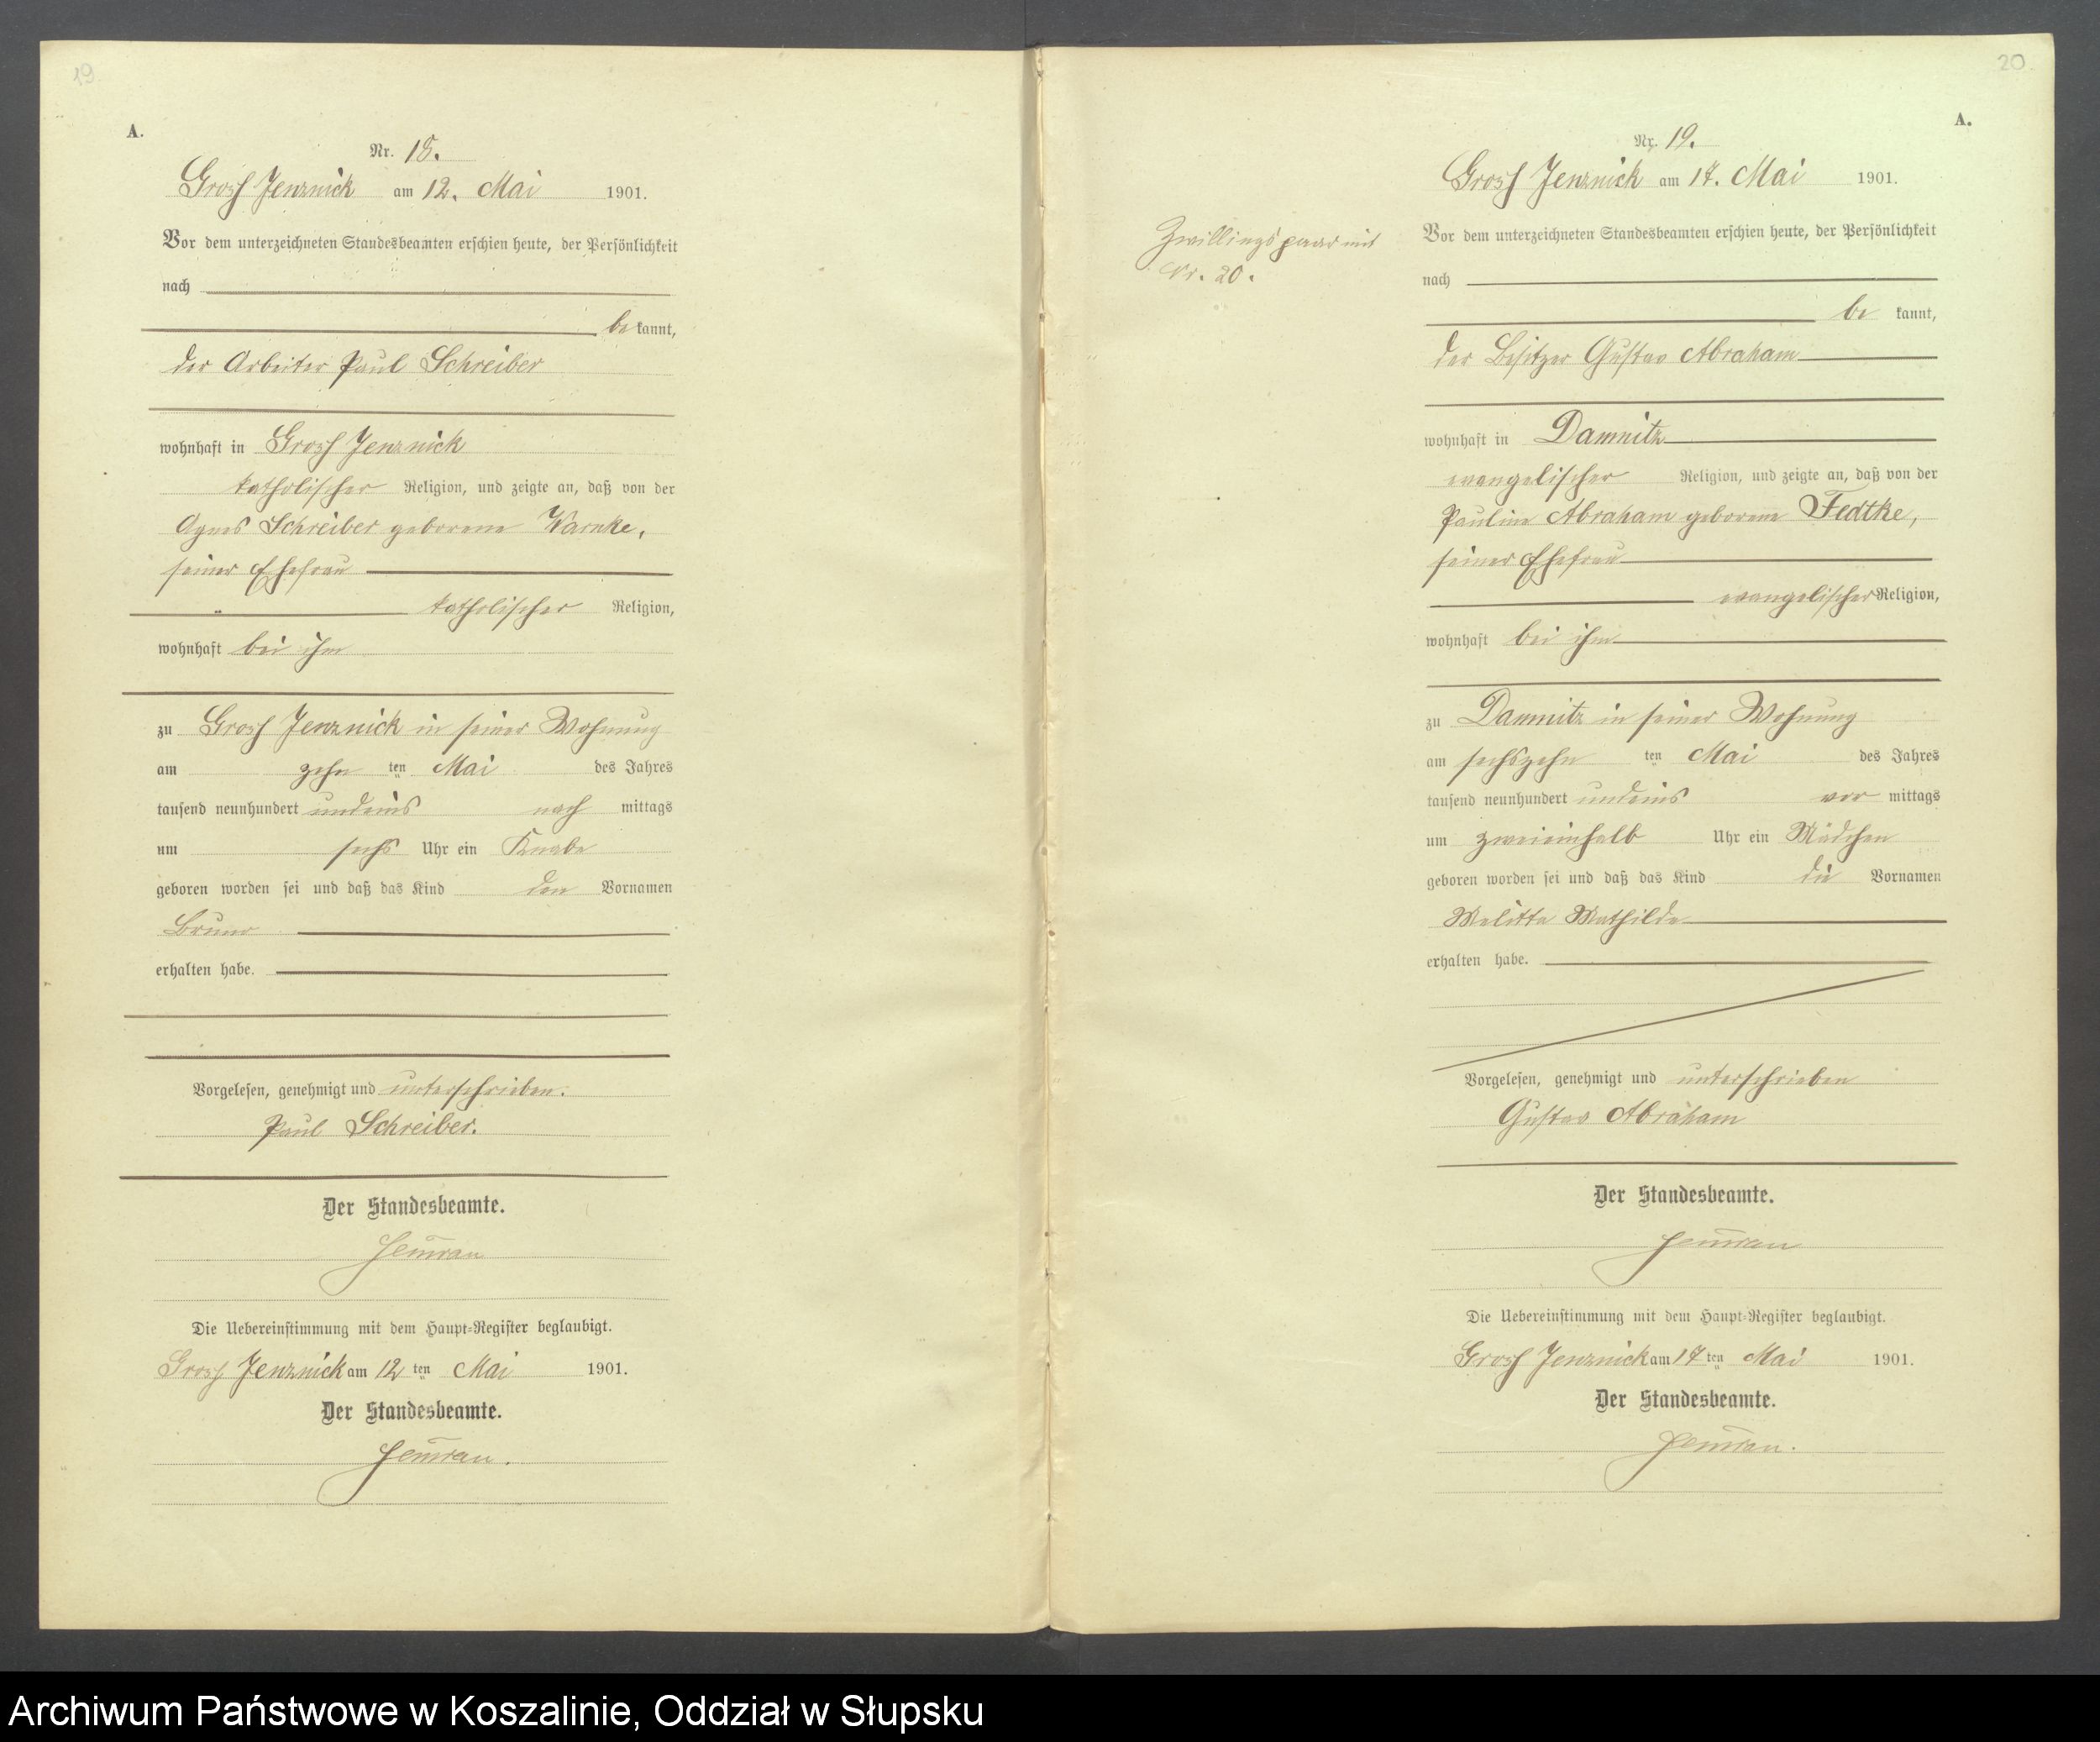 19.
A.
Nr. 18.
Gross Jenznick am 12. Mai 1901.
Vor dem unterzeichneten Standesbeamten erschien heute, der Persönlichkeit
nach
be kannt,
der Arbeiter Paul Schreiber
wohnhaft in Gross Jenznick
katholischer Religion, und zeigte an, daß von der
Agnes Schreiber geborene Warnke,
seiner Ehefrau
katholischer Religion,
wohnhaft bei ihm
zu Gross Jenznick in seiner Wohnung
am zehn ten Mai des Jahres
tausend neunhundert undeins nach mittags
um sechs Uhr ein Knabe
geboren worden sei und daß das Kind den Vornamen
Bruno
erhalten habe.
Vorgelesen, genehmigt und unterschrieben.
Paul Schreiber.
Der Standesbeamte.
Die Uebereinstimmung mit dem Haupt-Register beglaubigt.
Gross Jenznick am 12 ten Mai 1901.
Der Standesbeamte.
20.
A.
Nr. 19.
Gross Jenznick am 17. Mai 1901.
Zwillingspaar mit
Nr. 20.
Vor dem unterzeichneten Standesbeamten erschien heute, der Persönlichkeit
nach
be kannt,
der Besitzer Gustav Abraham
wohnhaft in Damnitz
evangelischer Religion, und zeigte an, daß von der
Pauline Abraham geborene Fedtke,
seiner Ehefrau
evangelischer Religion,
wohnhaft bei ihm
zu Damnitz in seiner Wohnung
am sechszehn ten Mai des Jahres
tausend neunhundert undeins vor mittags
um zweieinhalb Uhr ein Mädchen
geboren worden sei und daß das Kind die Vornamen
Melitta Mathilde
erhalten habe.
Vorgelesen, genehmigt und unterschrieben
Gustav Abraham
Der Standesbeamte.
Die Uebereinstimmung mit dem Haupt-Register beglaubigt.
Gross Jenznick am 17 ten Mai 1901.
Der Standesbeamte.
Archiwum Państwowe w Koszalinie, Oddział w Słupsku